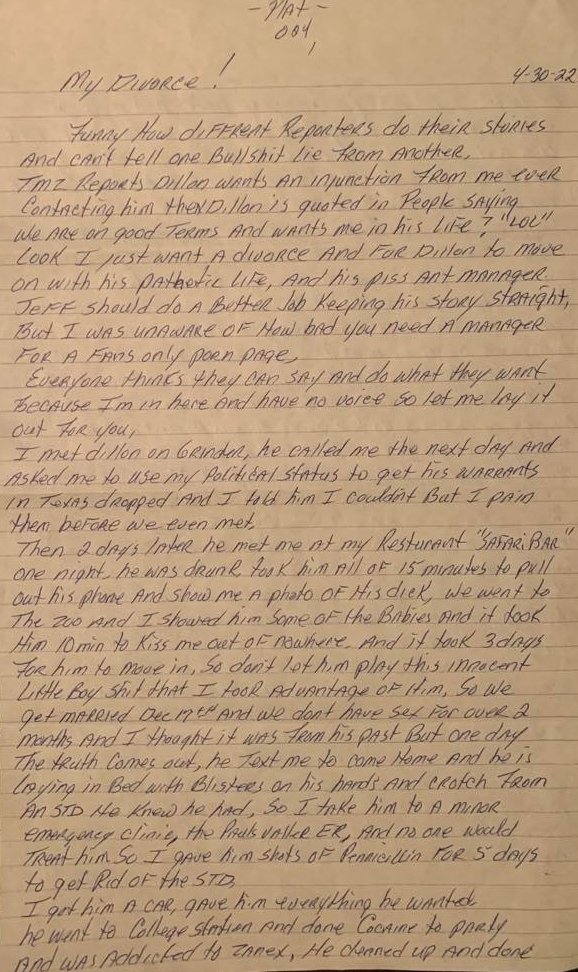 - Mat -
004,
My Divorce!
4-30-22
Funny How diffrent Reporters do their stories
And can't tell one Bullshit lie from Another,
TMZ Reports Dillon wants An injunction from me ever
Contacting him then Dillon is quoted in People saying
we are on good Terms And wants me in his life? "LOL"
Look I just want A divorce And for Dillon to move
on with his pathetic Life, And his piss ant manager
Jeff should do A Better Job Keeping his story straight,
But I was unaware of How bad you need A manager
For A Fans only porn page,
Everyone thinks they can say And do what they want
Because I'm in here And have no voice so let me lay it
out for you,
I met dillon on Grinder, he called me the next day and
Asked me to use my Political status to get his warrants
in Texas dropped And I told him I couldn't But I pain
them before we even met,
Then 2 days later he met me at my Resturant "SAFARI BAR"
one night, he was drunk took him All of 15 minutes to pull
out his phone And show me A photo of His dick, we went to
The zoo And I showed him Some of the Babies And it took
Him 10 min to Kiss me out of nowhere. And it took 3 days
for him to move in, So don't let him play this innocent
Little Boy shit that I took Advantage of Him, So we
get married Dec 11th And we dont have sex for over 2
months And I thought it was from his past But one day
The truth Comes out, he Text me to come Home And he is
laying in Bed with Blisters on his hands And crotch From
An STD He Knew he had, So I take him to A minor
emergency Clinic, the Pauls Valley ER, And no one would
Treat him So I gave him shots of Pennicillin for 5 days
to get Rid of the STD,
I got him A CAR, gave him everything he wanted
he went to College Station And done Cocaine to party
And was Addicted to Zanex, He cleaned up And done